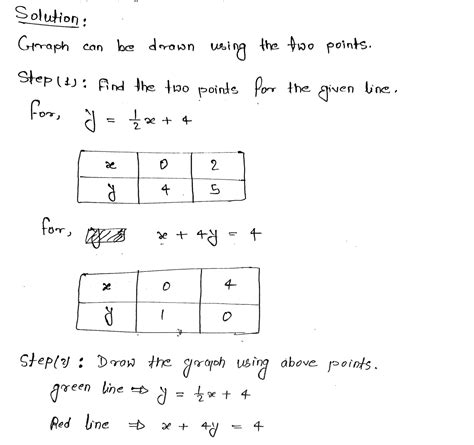 Solution:
Graph can be drawn using the two points.
Step(1): Find the two points for the given line.
For, y = 1/2 x + 4
x 0 2
y 4 5
for, x + 4y = 4
x 0 4
y 1 0
Step(2): Draw the graph using above points.
green line ⇒ y = 1/2 x + 4
Red line ⇒ x + 4y = 4